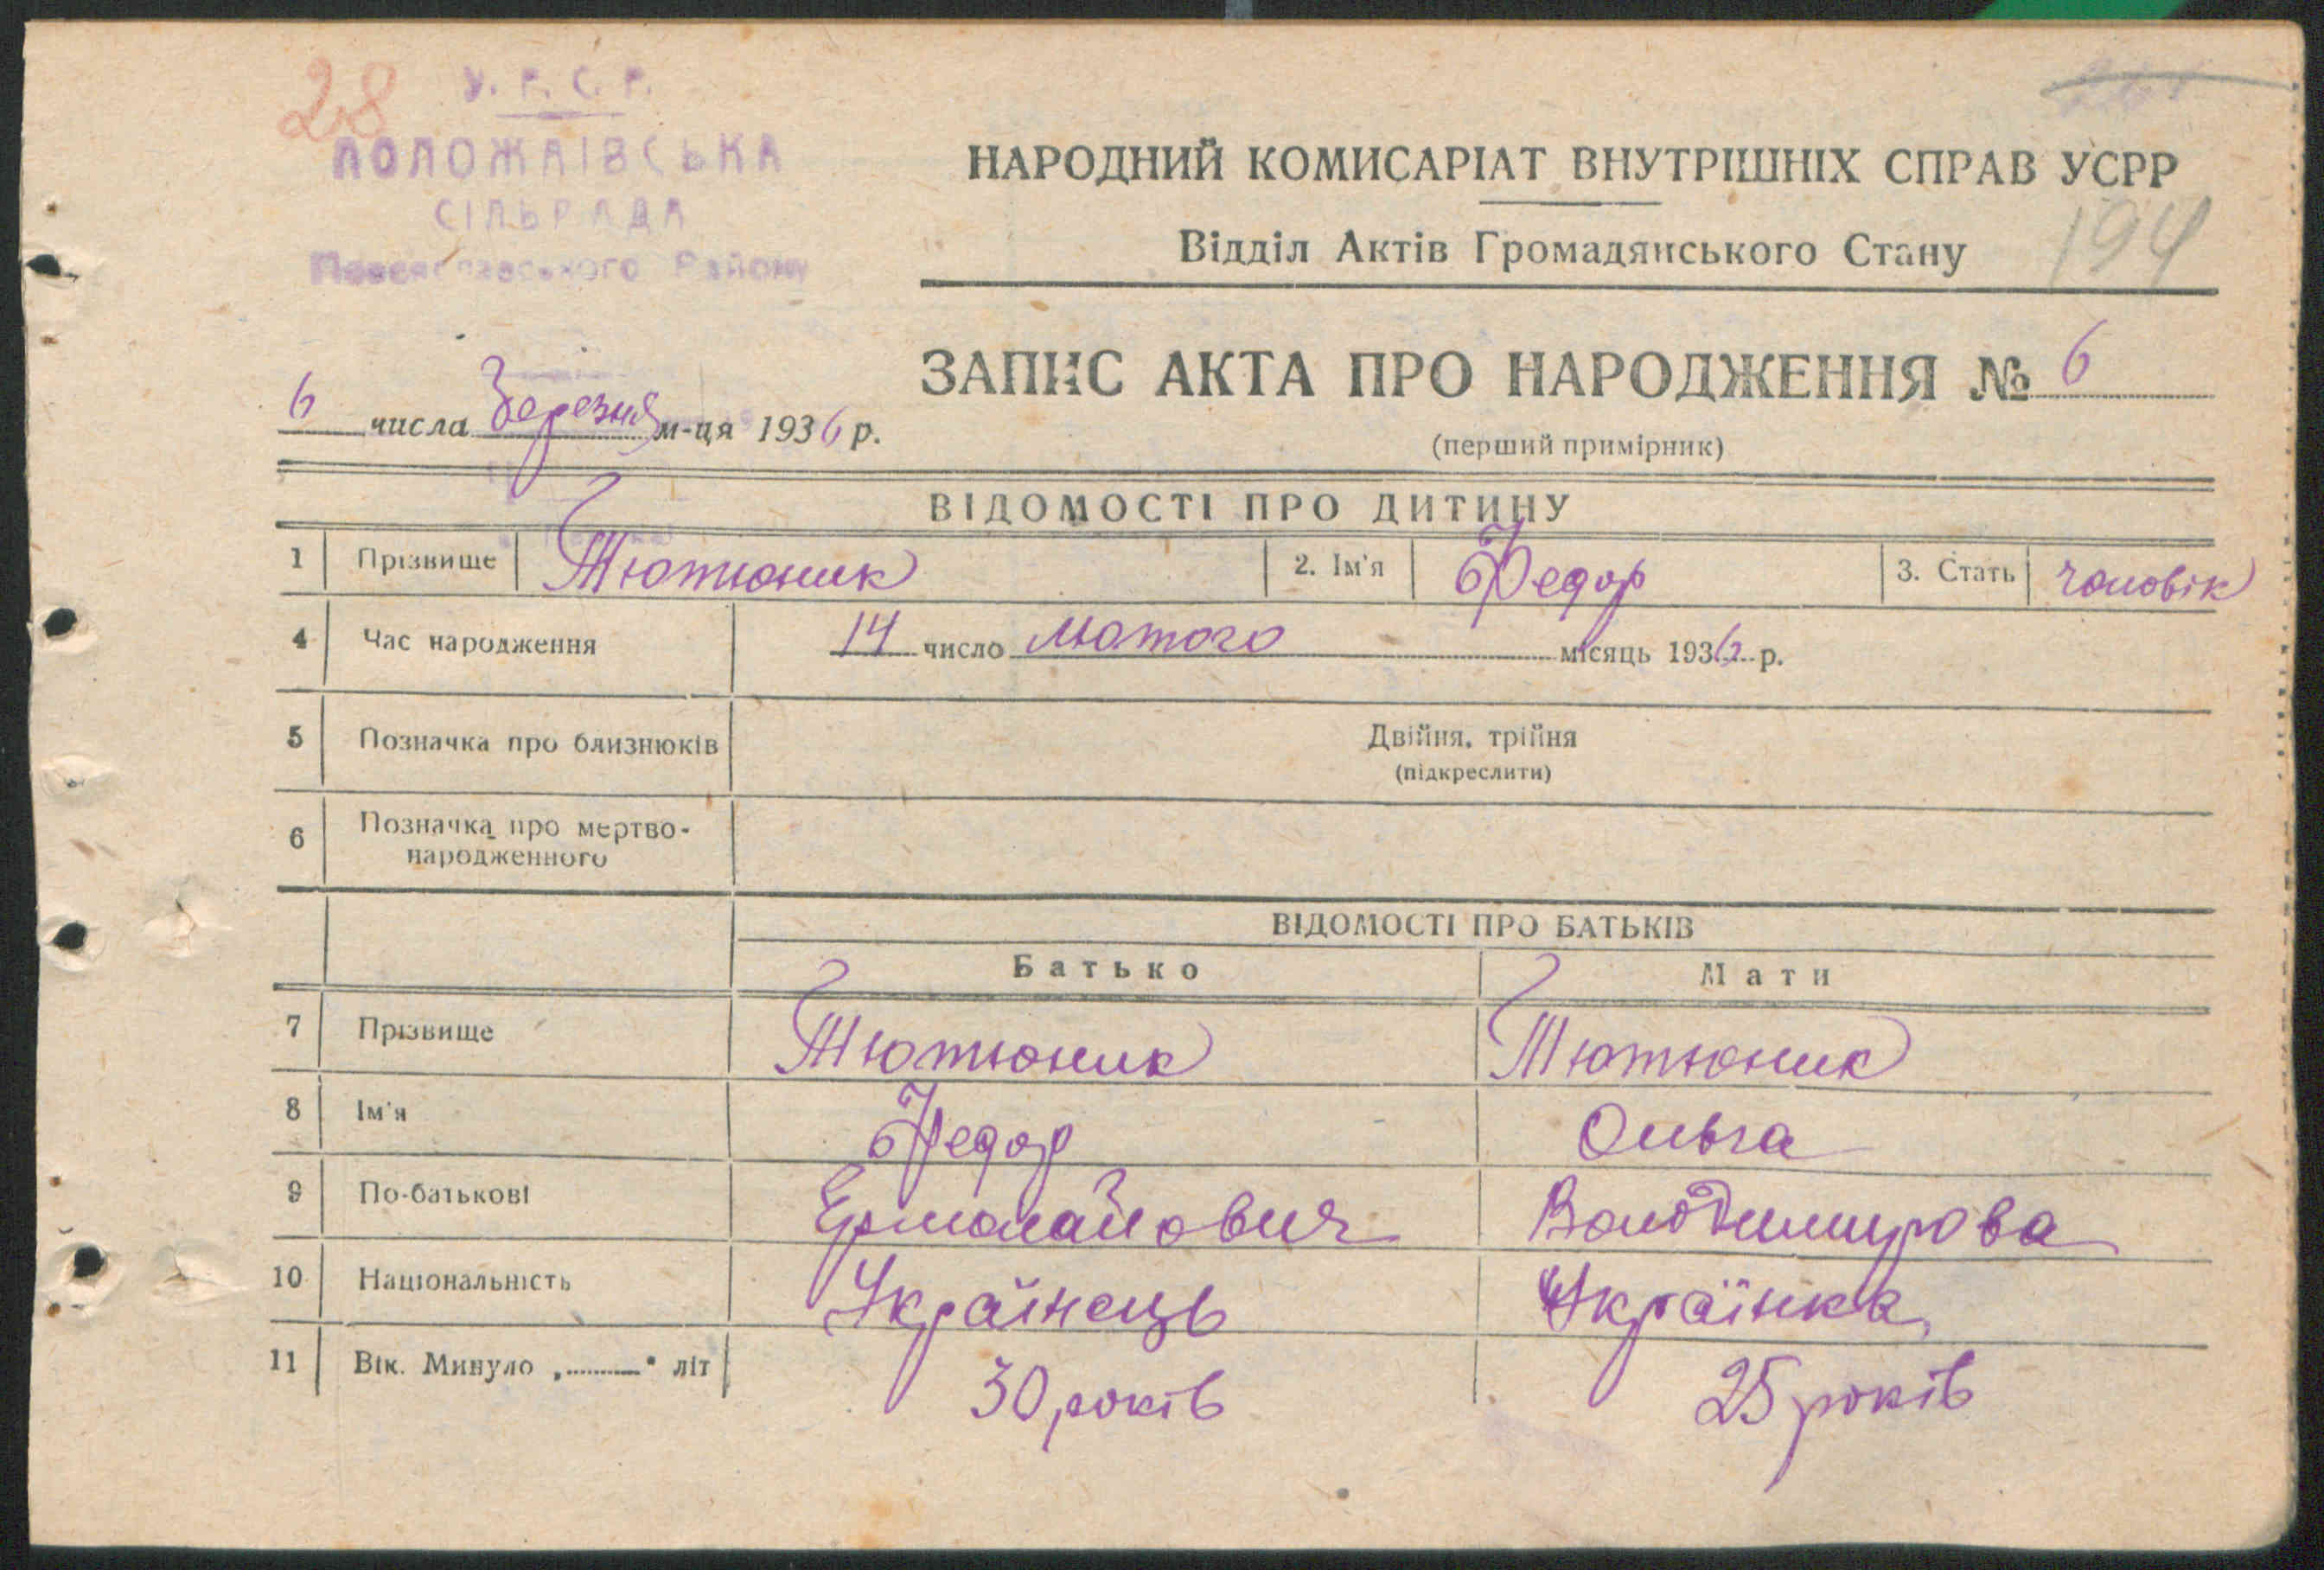 28
У. Р. С. Р.
ПОЛОЖАІВСЬКА
СІЛЬРАДА
Району
НАРОДНИЙ КОМИСАРІАТ ВНУТРІШНІХ СПРАВ УСРР
Відділ Актів Громадянського Стану 194
ЗАПИС АКТА ПРО НАРОДЖЕННЯ № 6
6 числа Березня м-ця 1936 р.
(перший примірник)
ВІДОМОСТІ ПРО ДИТИНУ
1 Прізвище Тютюник 2. Ім'я Федор 3. Стать чоловік
4 Час народження 14 число Лютого місяць 1936 р.
5 Позначка про близнюків Двійня, трійня
(підкреслити)
6 Позначка про мертво-
народженного
ВІДОМОСТІ ПРО БАТЬКІВ
Батько Мати
7 Прізвище Тютюник Тютюник
8 Ім'я Федор Ольга
9 По-батькові Ермолайович Володимирова
10 Національність Українець Українка
11 Вік. Минуло „..........“ літ 30 років 25 років